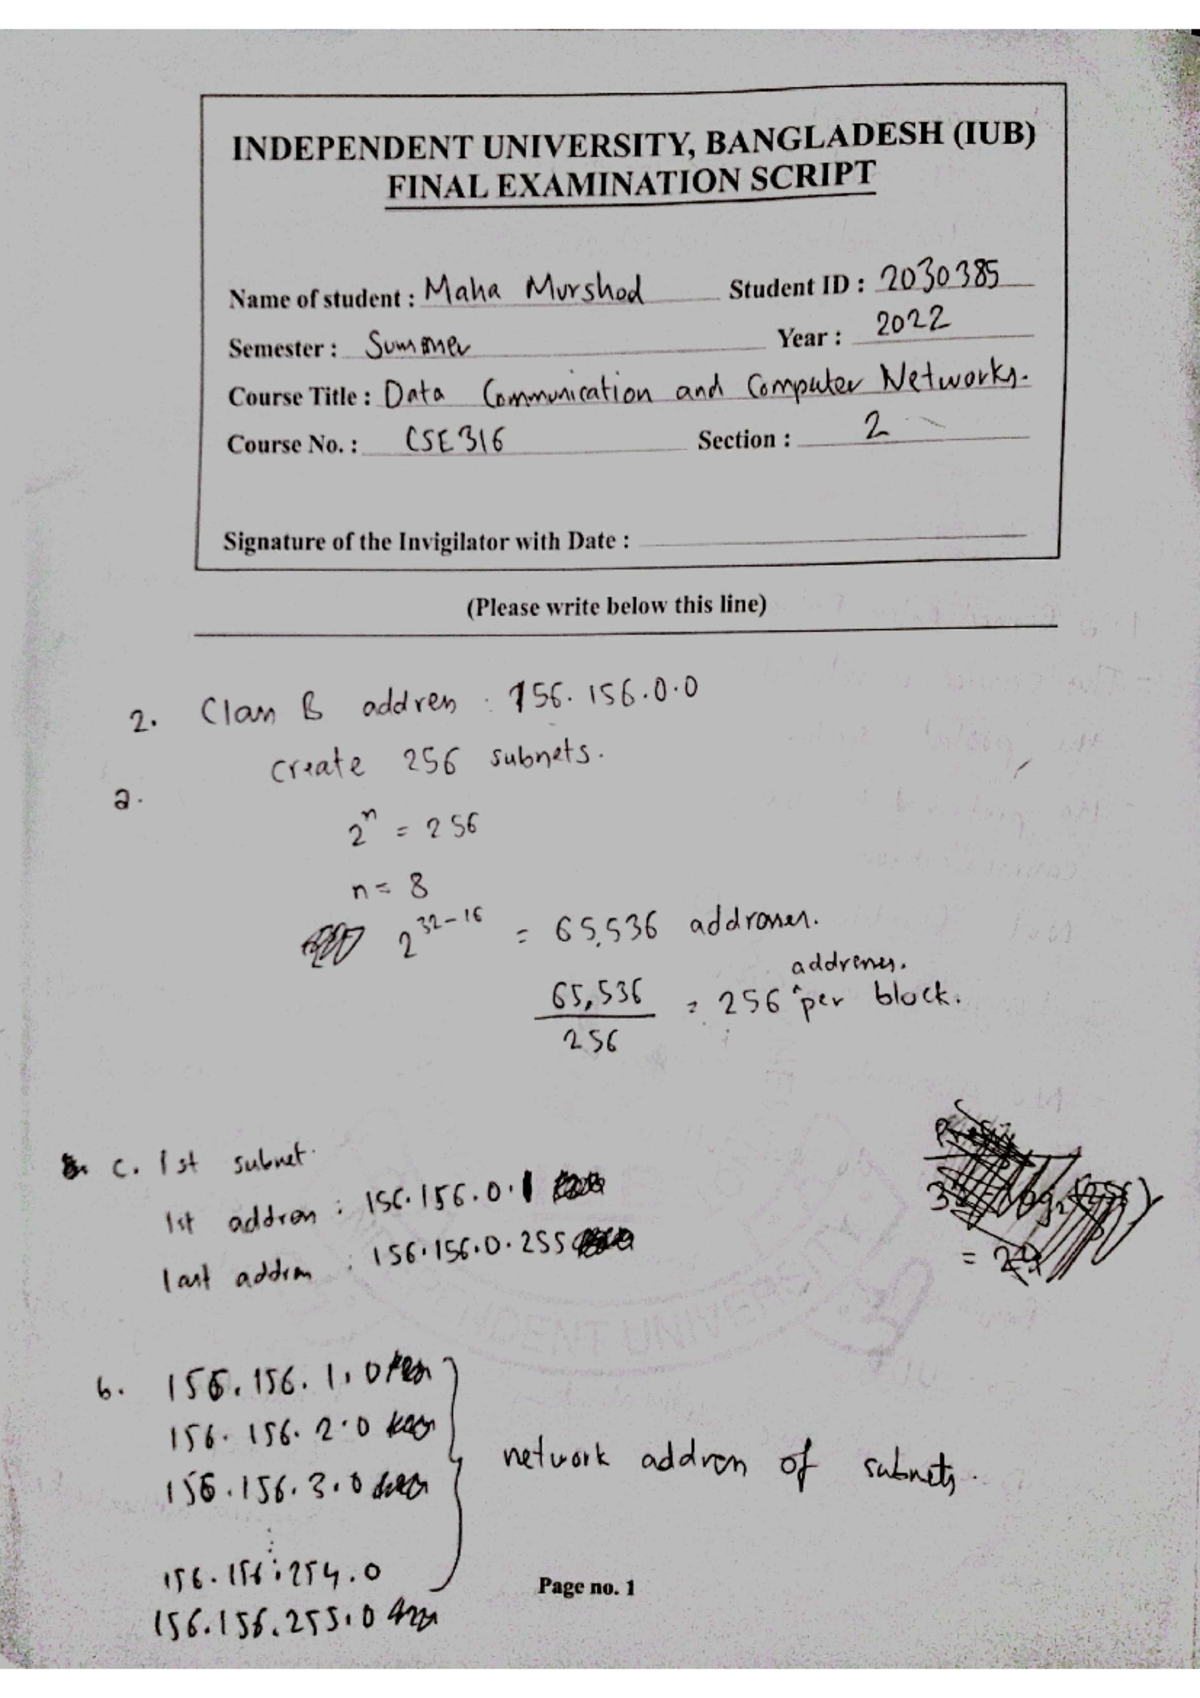 INDEPENDENT UNIVERSITY, BANGLADESH (IUB)
FINAL EXAMINATION SCRIPT
Name of student : Maha Murshod Student ID : 2030385
Semester : Summer Year : 2022
Course Title : Data Communication and Computer Networks.
Course No. : CSE316 Section : 2
Signature of the Invigilator with Date :
(Please write below this line)
2. Class B address : 156.156.0.0
create 256 subnets.
a.
2^n = 256
n = 8
2^32-16 = 65,536 addresses.
addresses.
65,536 / 256 = 256 per block.
c. 1st subnet.
1st address : 156.156.0.1
last address : 156.156.0.255
b. 156.156.1.0
156.156.2.0
156.156.3.0
network address of subnets.
156.156.254.0
Page no. 1
156.156.255.0